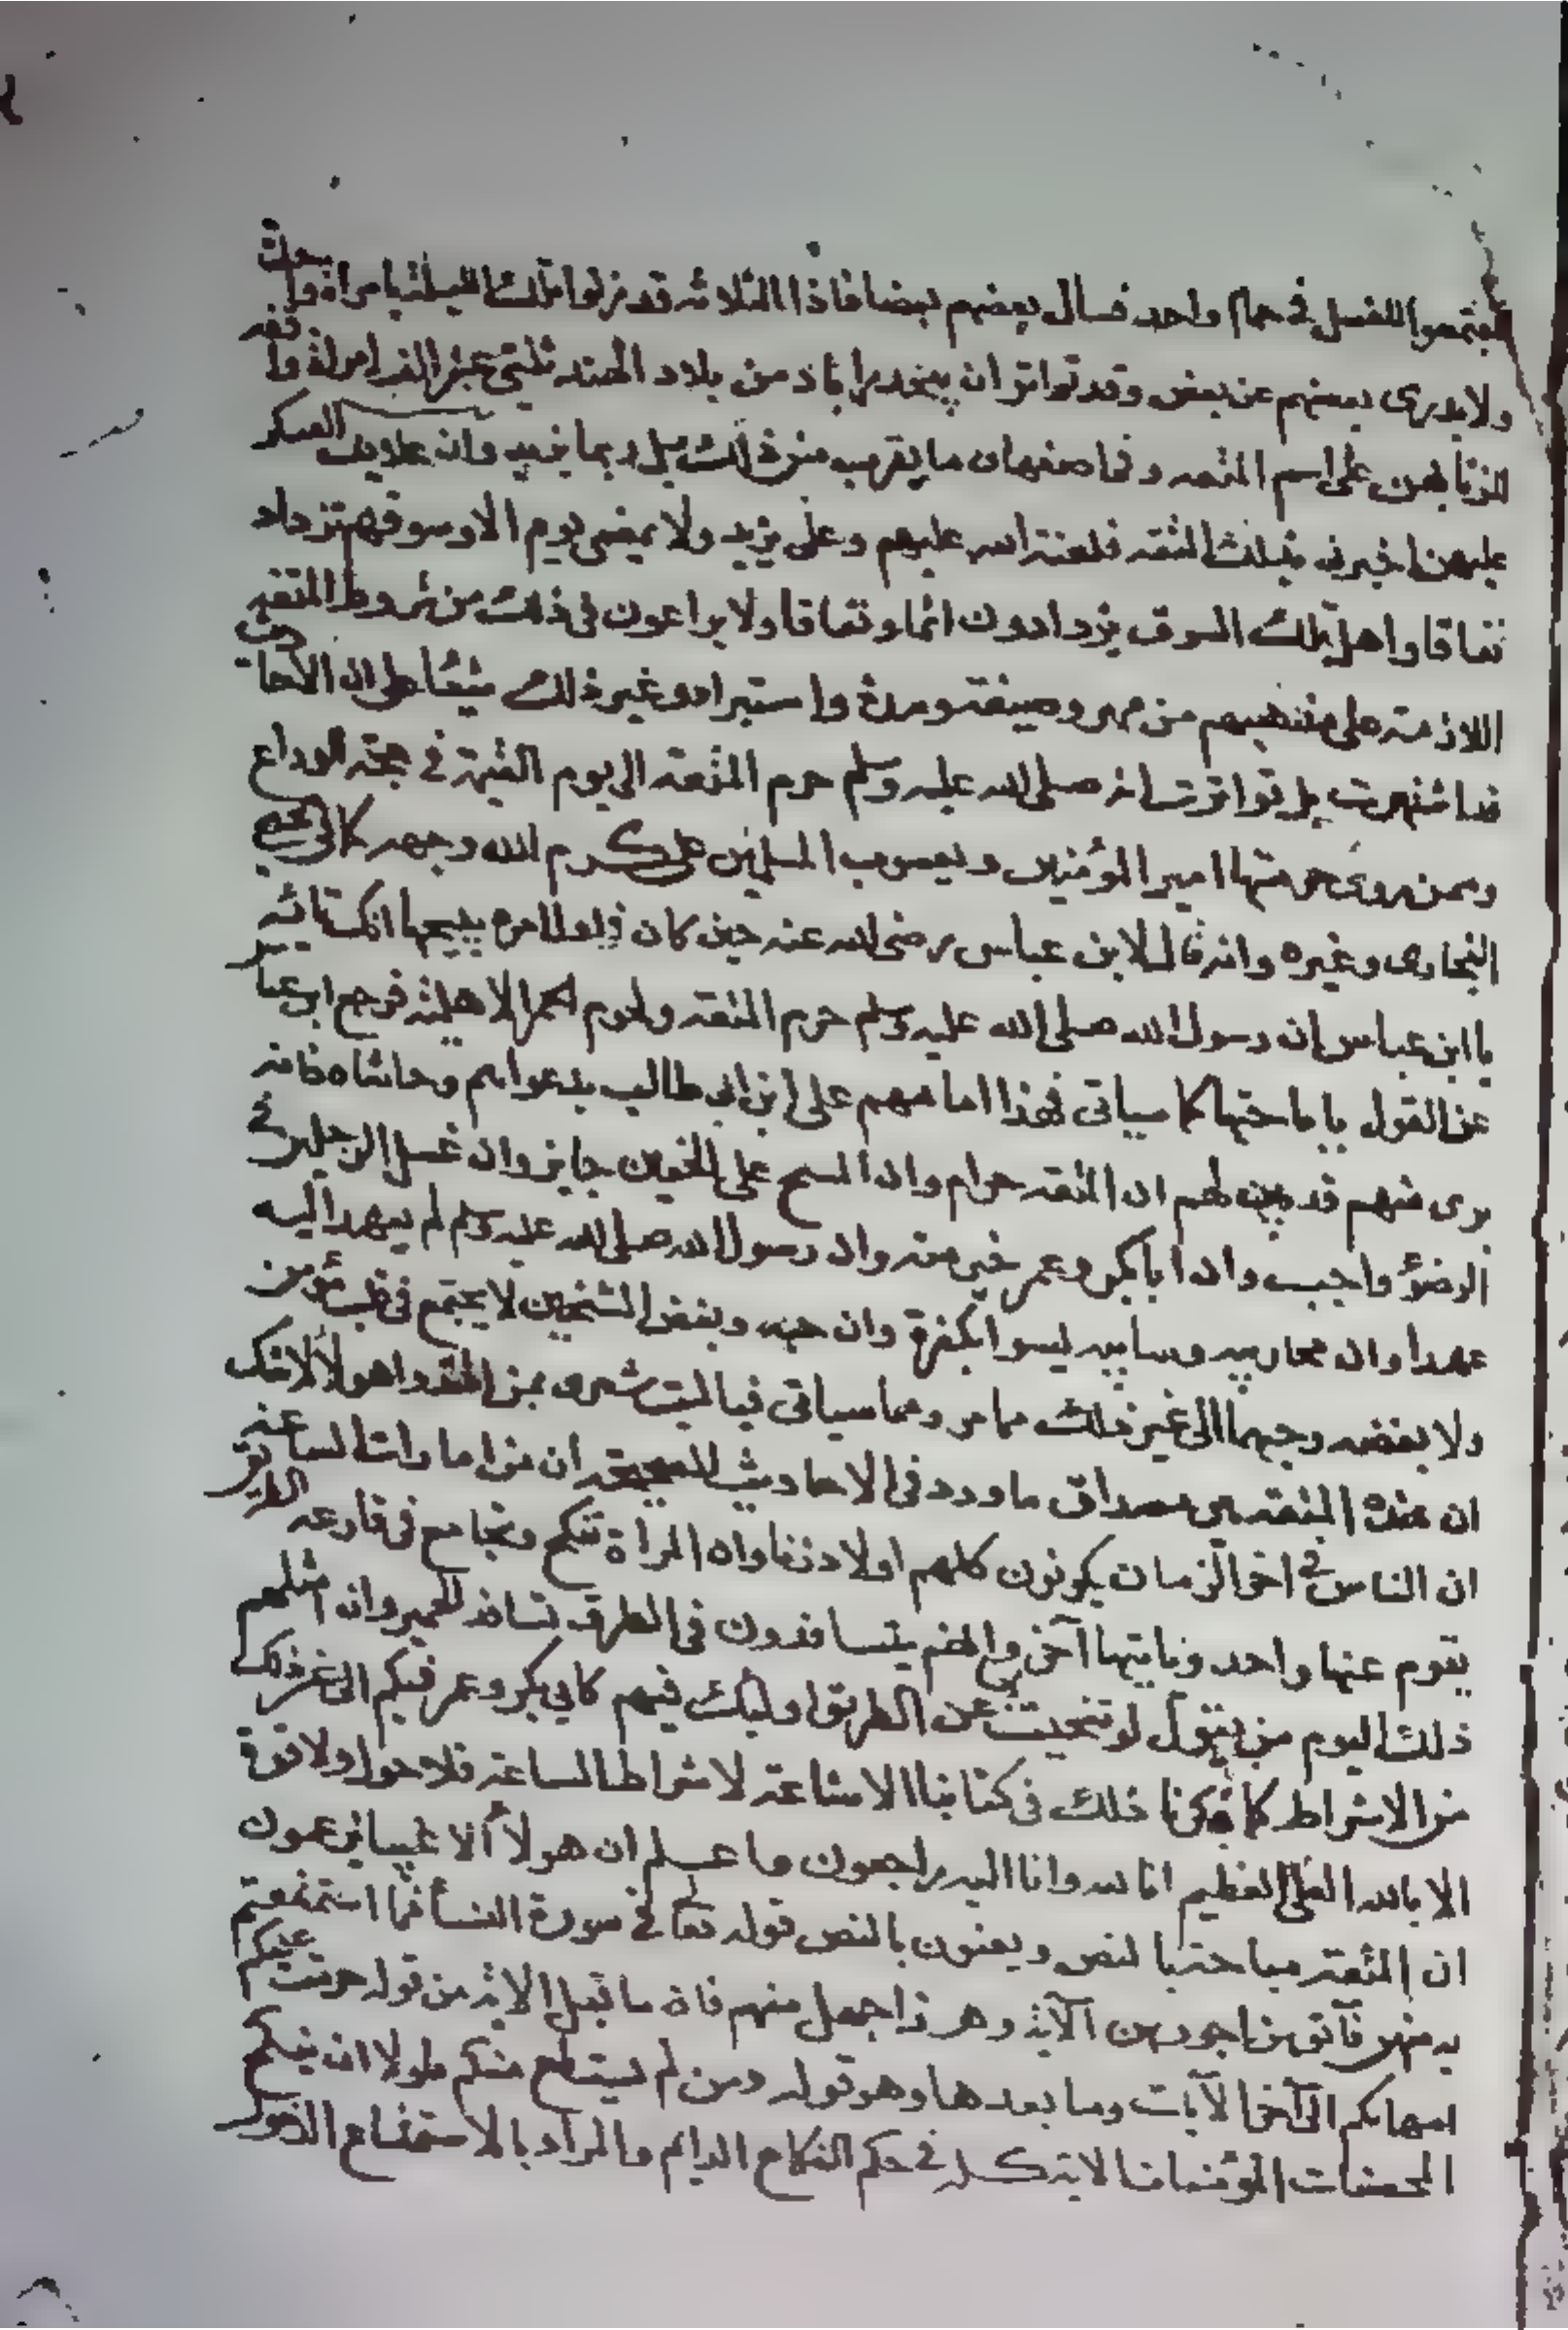 اجتمعوا للغسل في حمام واحد فسال بعضهم بعضا فاذا الثلاثه قد نزلوا تلك الليلة بامراة
ولا يدرى بعضهم عن بعض وقد تواتر ان من بلاد الهند امراة
للزنا بهن على اسم المتعه وفى اصفهان ما يقرب من ذلك بل ربما يزيد وان العسكر
عليهن اخبرني بذلك الثقه فلعنة الله عليهم وعلى يزيد ولا يمضى يوم الا وسوقهم تزداد
نفاقا واهل تلك السوق يزدادون اثما ونفاقا ولا يراعون في ذلك من شروط المتعه
اللازمة على مذهبهم من مهر وصيغة ومدة واستبراء وغير ذلك شيئا على ان الاحاديث
قد اشتهرت بل تواترت انه صلى الله عليه وسلم حرم المتعه الى يوم القيمة في حجة الوداع
وممن روى حرمتها امير المؤمنين ويعسوب المسلمين على كرم الله وجهه كما في صحيح
البخارى وغيره وانه قال لابن عباس رضى الله عنه حين كان يبيحها انك تائه
يا ابن عباس ان رسول الله صلى الله عليه وسلم حرم المتعه ولحوم الحمر الاهلية فرجع ابن عباس
عن القول باباحتها كما سياتى فهذا امامهم على ابن ابي طالب بدعواهم وحاشاه فانه
برى منهم قد بين لهم ان المتعه حرام وان المسح على الخفين جايز وان غسل الرجلين في
الوضؤ واجب وان ابا بكر وعمر خير منه وان رسول الله صلى الله عليه وسلم لم يعهد اليه
عهدا وان محاربيه وسابيه ليسوا بكفرة وان حبه وبغض الشيخين لا يجتمع في قلب مؤمن
ولا بغضه وحبهما الى غير ذلك مما مر ومما سياتى فيا ليت شعرى بمن اقتدوا هولاء لا شك
ان هذه المتعه هي مصداق ما ورد في الاحاديث الصحيحه ان من امارات الساعه
ان الناس في اخر الزمان يكونون كلهم اولاد زنا وان المراة تنكح وتجامع في قارعه الطريق
يقوم عنها واحد وياتيها آخر وانهم يتسافدون في الطرق تسافد الحمير وان امثلهم
ذلك اليوم من يقول لو تنحيت عن الطريق اوليك فيهم كابي بكر وعمر فيكم الى غير ذلك
من الاشراط كما ذكرنا ذلك في كتابنا الاشاعة لاشراط الساعة فلا حول ولا قوة
الا بالله العلى العظيم انا لله وانا اليه راجعون واعلم ان هولاء الاغبيا يزعمون
ان المتعة مباحة بالنص ويعنون بالنص قوله تعالى في سورة النساء فما استمتعتم
به منهن فآتوهن اجورهن الآية وهو ذا جهل منهم فان ما قبل الاية من قوله حرمت عليكم
امهاتكم الى آخر الآيات وما بعدها وهو قوله ومن لم يستطع منكم طولا ان ينكح
المحصنات المؤمنات في حكم النكاح الدايم والمراد بالاستمتاع المذكور